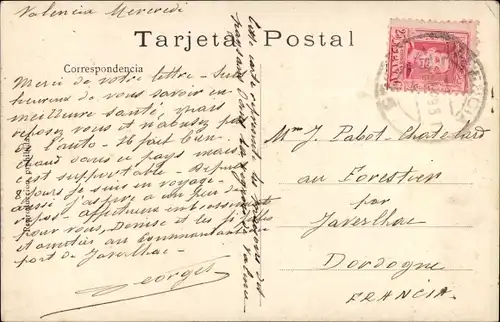 Valencia Mercredi
Tarjeta Postal
Correspondencia
Merci de votre lettre - Suis
heureux de vous savoir en
meilleure santé, mais
reposez vous et n'abusez pas
de l'auto. Il fait bien
chaud dans ce pays mais
c'est supportable. Depuis
jours je suis en voyage.
aussi j'aspire à un peu de
repos. affectueux
pour vous, Denise et les
et amitiés au Commandant
port de Javerlhac
Georges
Cette carte représente les
paysans dans les
Valence
Mme J. Pabot-Chatelard
au Forestier
par
Javerlhac
Dordogne
FRANCIA